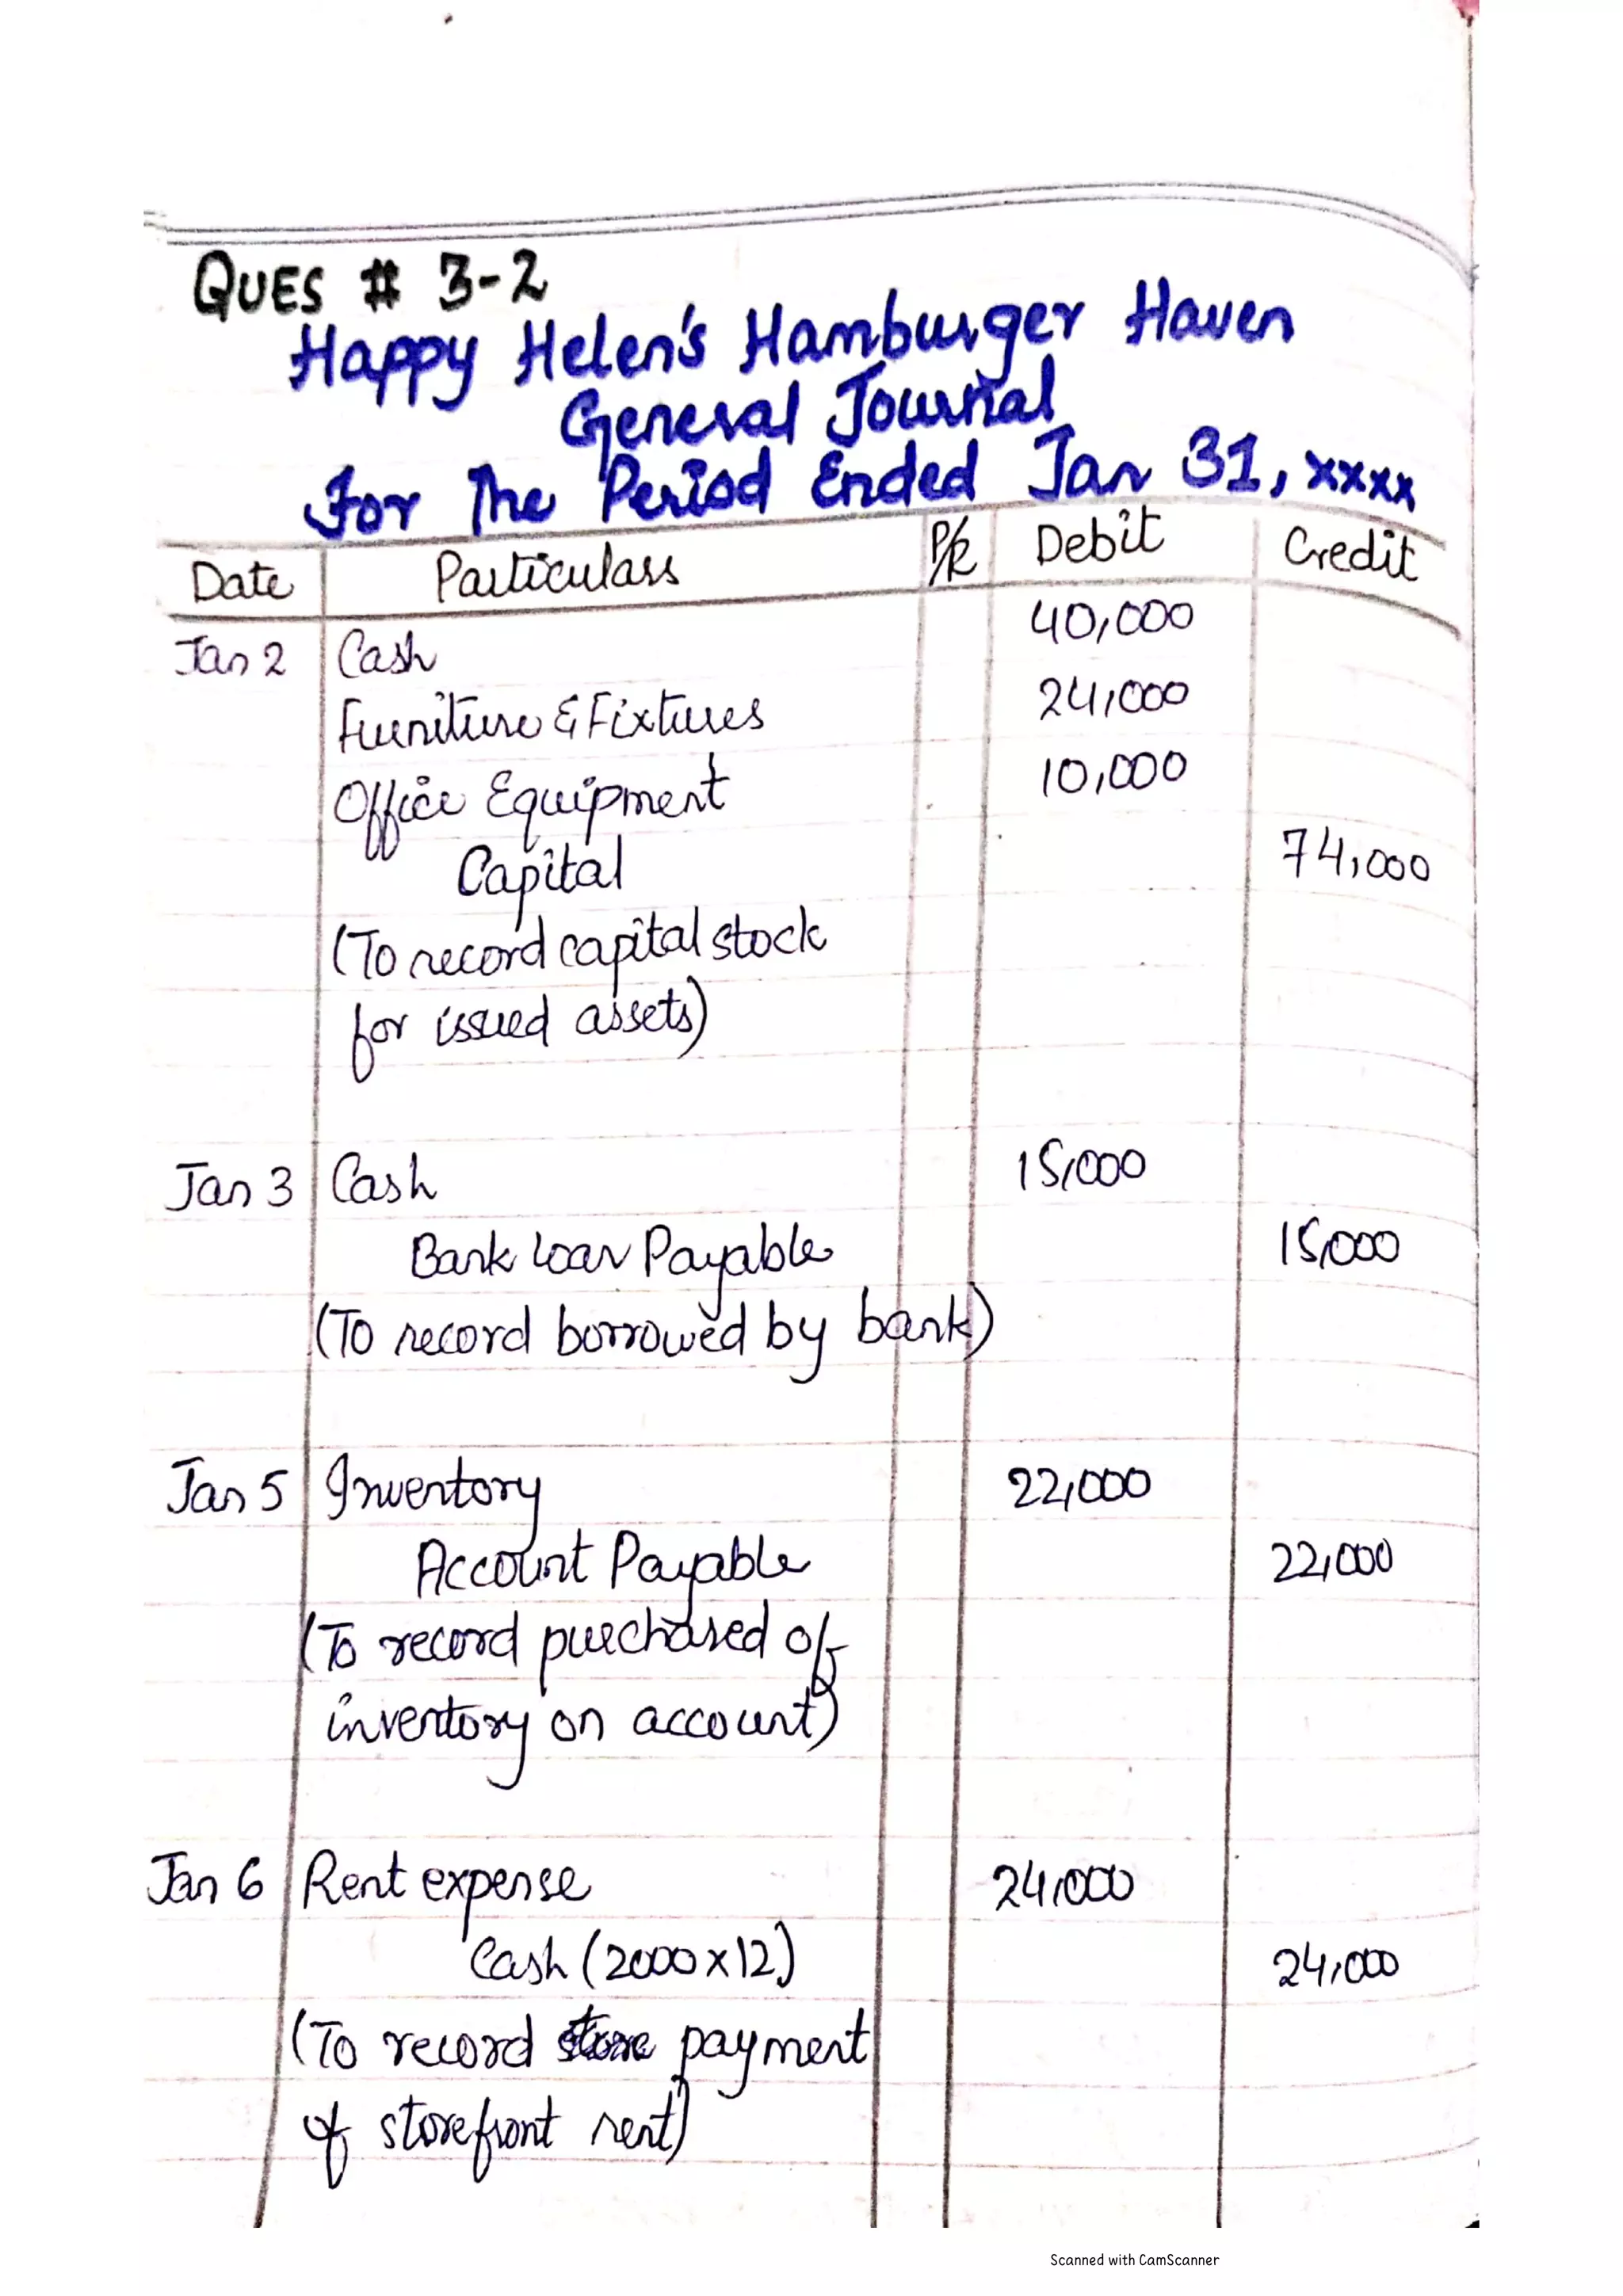 QUES # 3-2
Happy Helen's Hamburger Haven
General Journal
For The Period Ended Jan 31, xxxx
Date Particulars P/R Debit Credit
Jan 2 Cash 40,000
Furniture & Fixtures 24,000
Office Equipment 10,000
Capital 74,000
(To record capital stock
for issued assets)
Jan 3 Cash 15,000
Bank Loan Payable 15,000
(To record borrowed by bank)
Jan 5 Inventory 22,000
Account Payable 22,000
(To record purchased of
inventory on account)
Jan 6 Rent expense 24,000
Cash (2000 x 12) 24,000
(To record store payment
of storefront rent)
Scanned with CamScanner